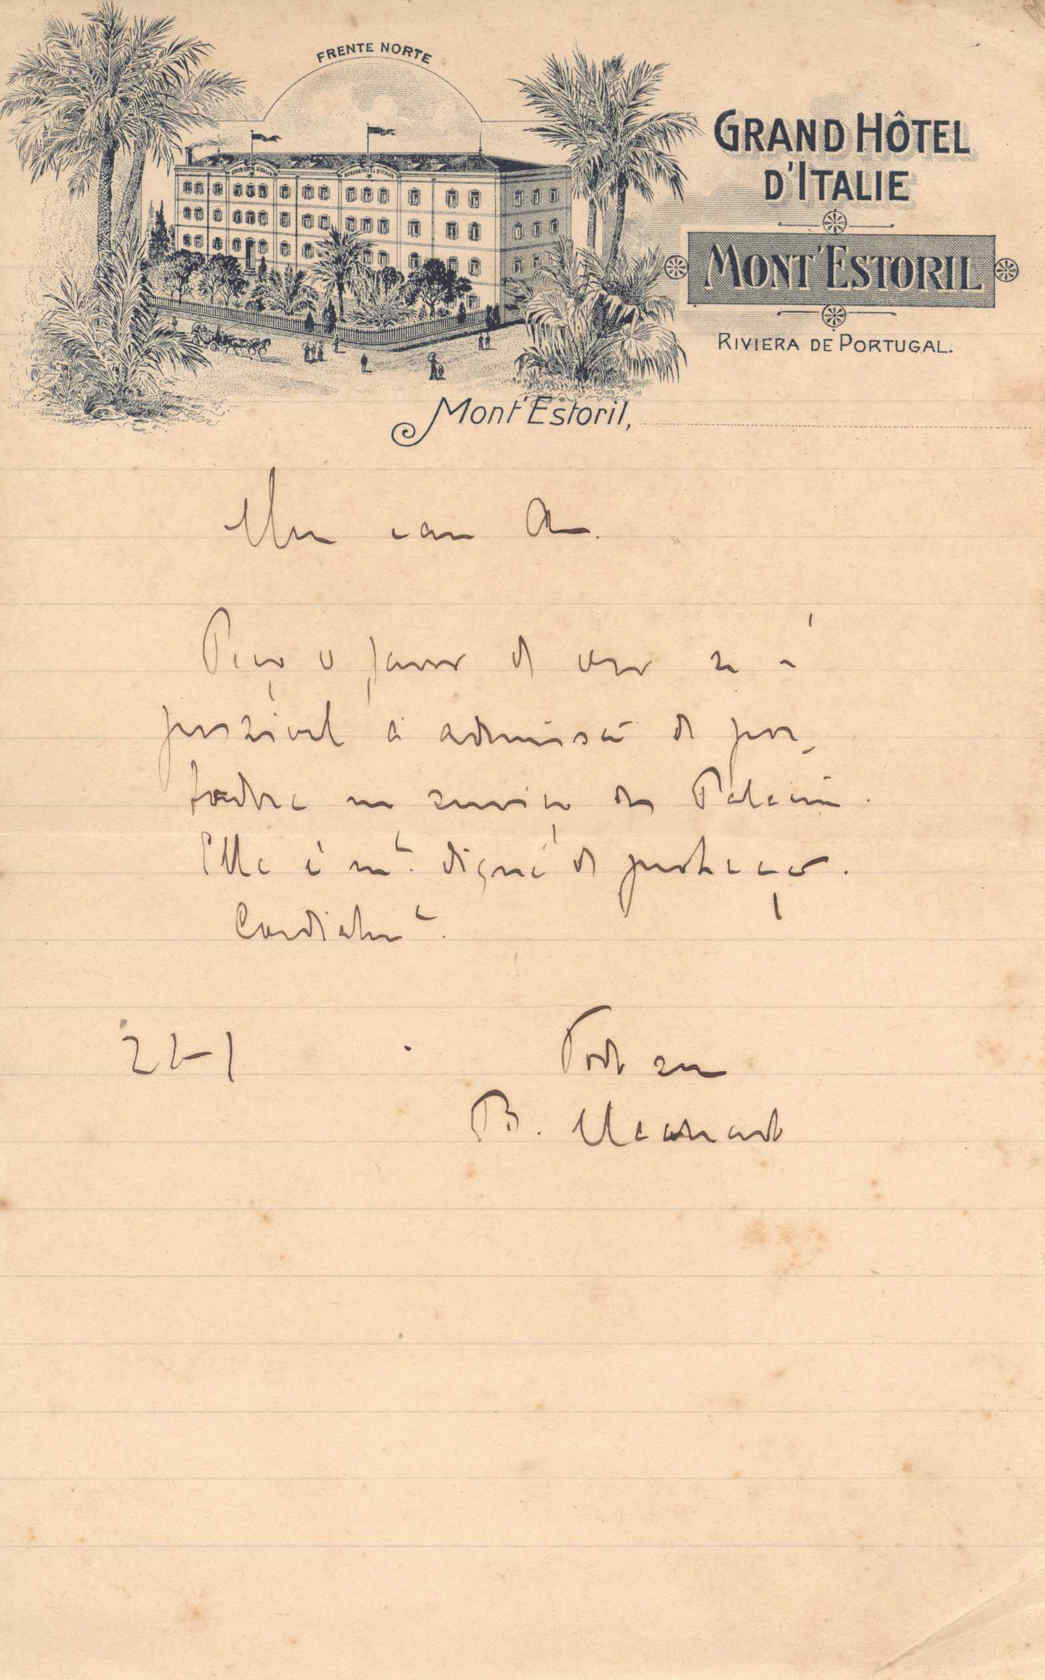 FRENTE NORTE
GRAND HÔTEL
D'ITALIE
MONT'ESTORIL
RIVIERA DE PORTUGAL.
Mont'Estoril,
Meu caro
Peço o favor de ver se é
possivel a admissão de por-
tadora no serviço do Palacio.
Elle é mto. digna de protecção.
Cordialmte.
B. Machado